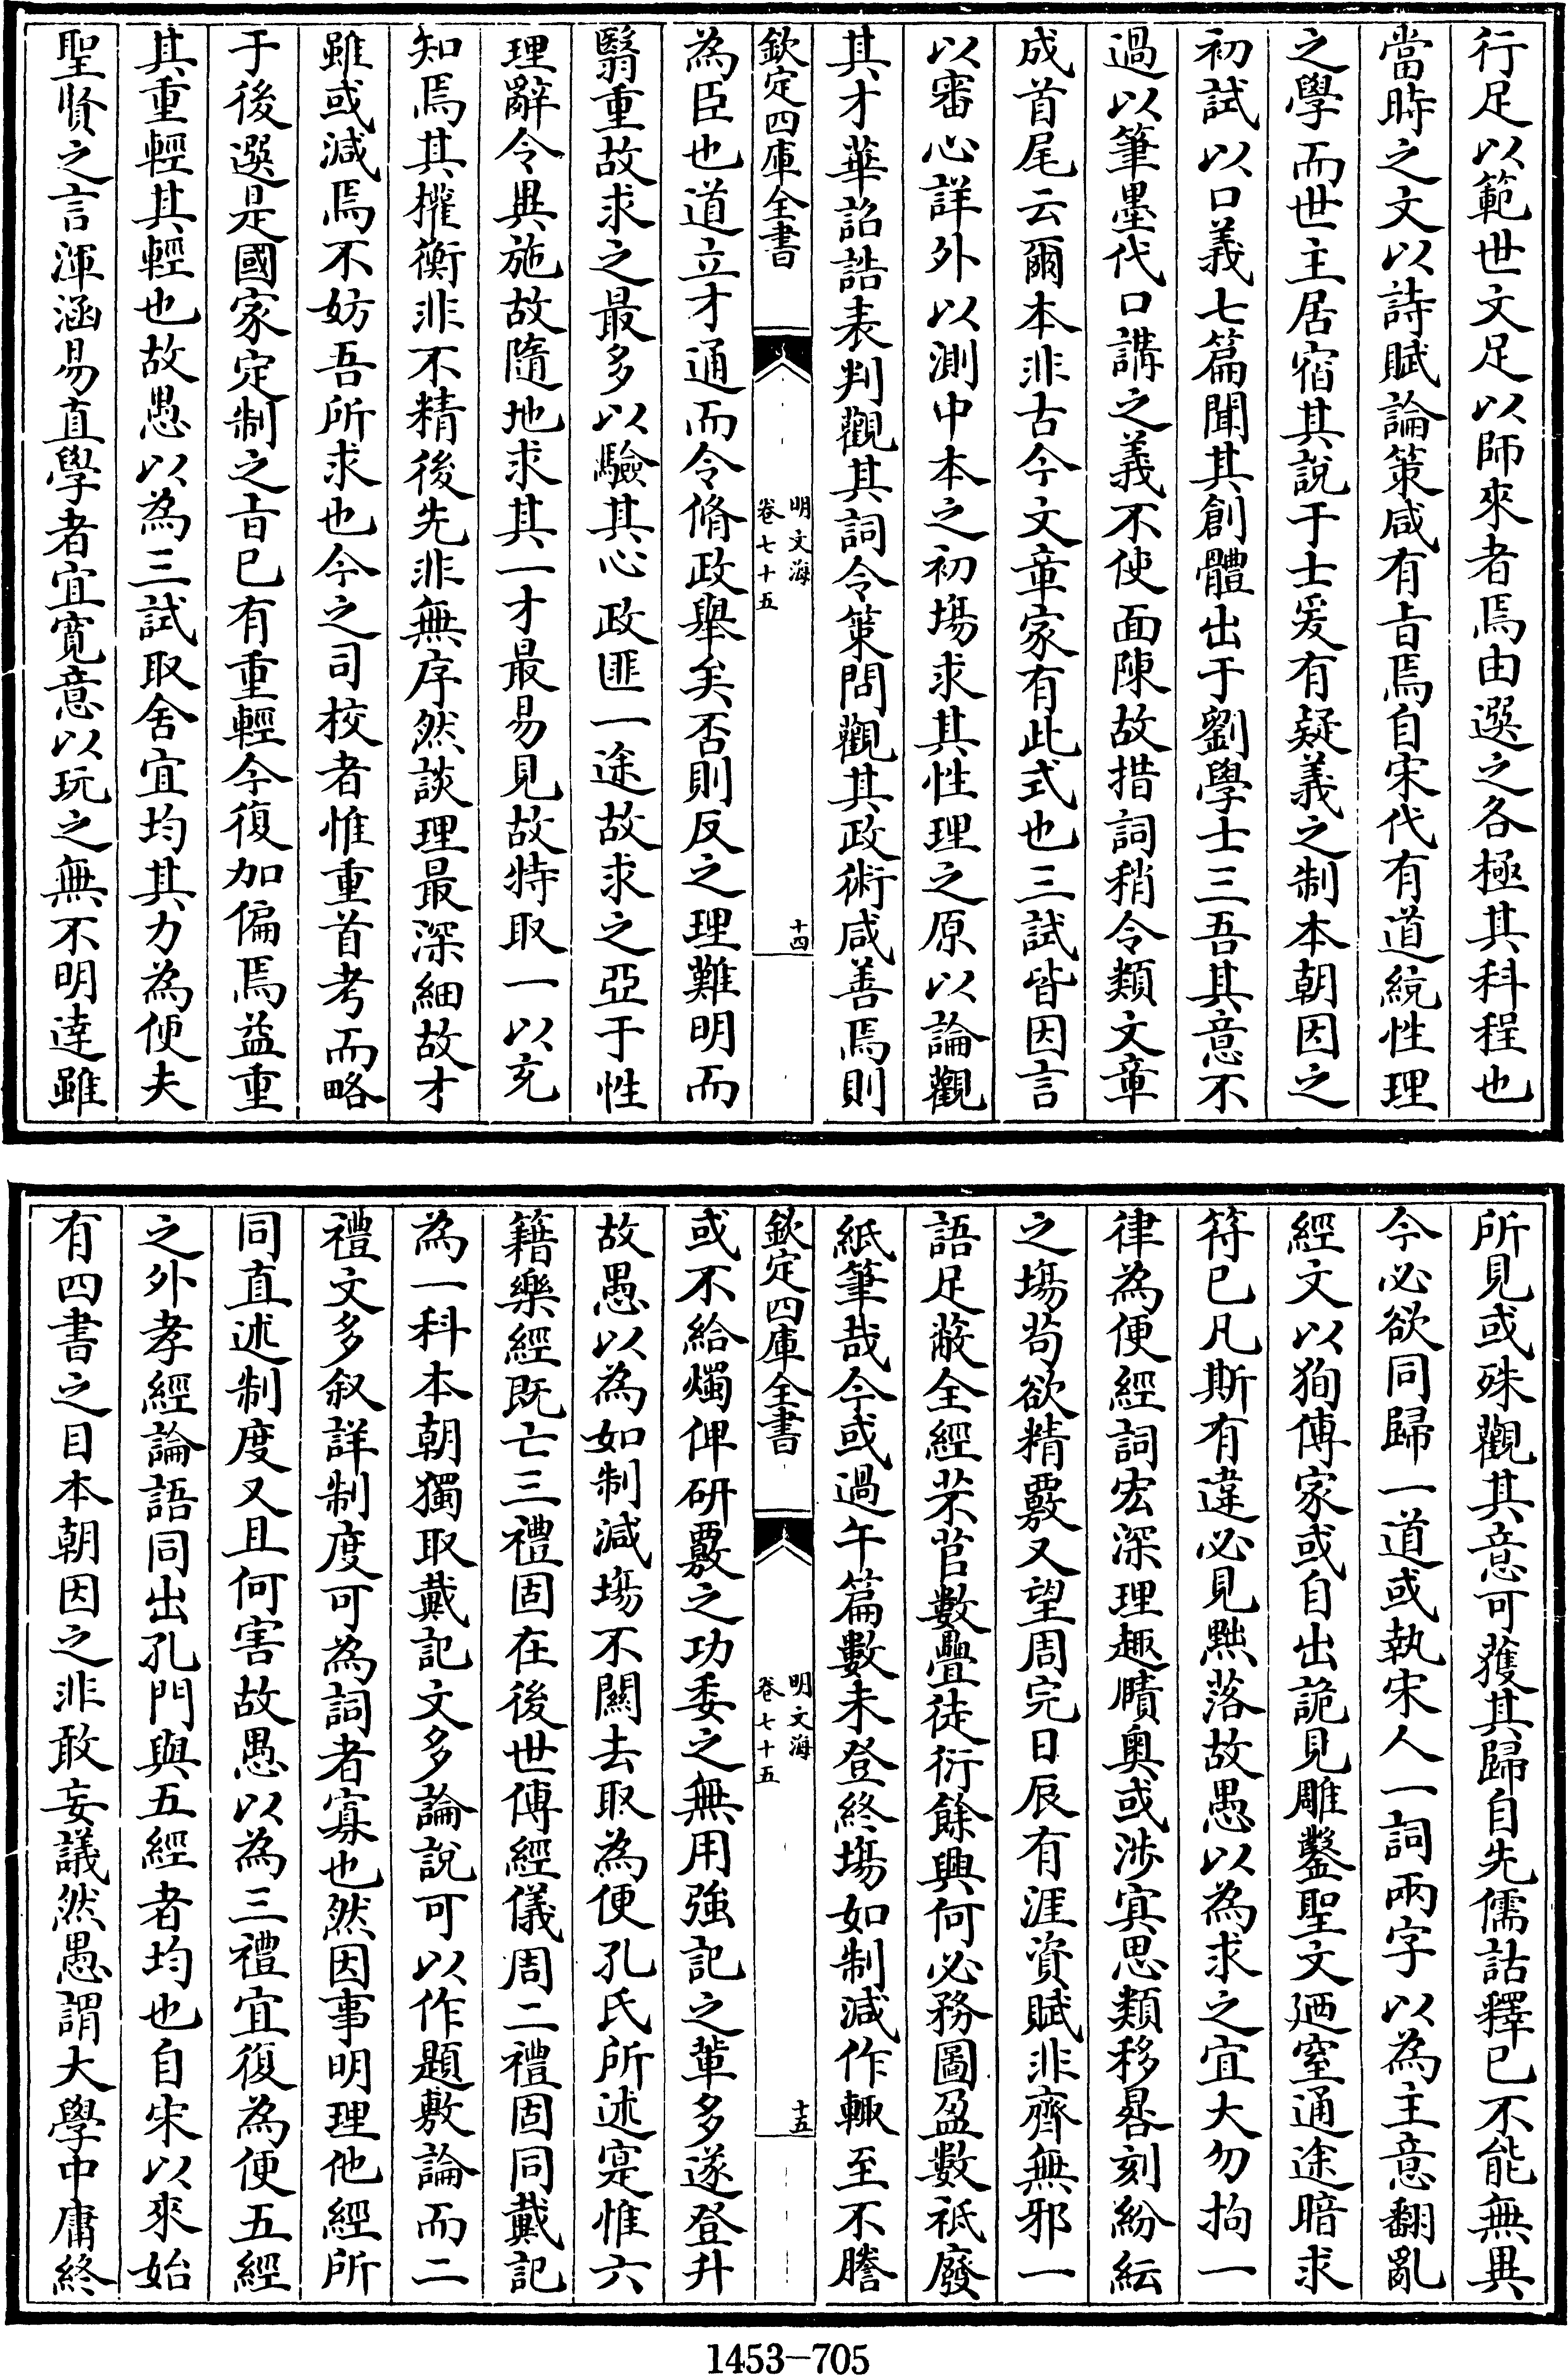 行足以範世文足以師來者焉由選之各極其科程也
當時之文以詩賦論策咸有㫖焉自宋代有道統性理
之學而世主居宿其說于士爰有疑義之制本朝因之
初試以口義七篇聞其創體出于劉學士三吾其意不
過以筆墨代口講之義不使面陳故措詞稍令類文章
成首尾云爾本非古今文章家有此式也三試皆因言
以審心詳外以測中本之初塲求其性理之原以論觀
其才華詔誥表判觀其詞令䇿問觀其政術咸善焉則
欽定四庫全書
明文海
卷七十五
十四
為臣也道立才通而令脩政舉矣否則反之理難明而
翳重故求之最多以驗其心政匪一途故求之亞于性
理辭令異施故隨地求其一才最易見故特取一以充
知焉其權衡非不精後先非無序然談理最深細故才
雖或減焉不妨吾所求也今之司校者惟重首考而略
于後選是國家定制之㫖已有重輕今復加偏焉益重
其重輕其輕也故愚以為三試取舍宜均其力為便夫
聖賢之言渾涵易直學者宜寛意以玩之無不明逹雖
所見或殊觀其意可獲其歸自先儒詁釋已不能無異
今必欲同歸一道或執宋人一詞兩字以為主意翻亂
經文以狥傳家或自出詭見雕鑿聖文廼窒通途暗求
符已凡斯有違必見黜落故愚以為求之宜大勿拘一
律為便經詞宏深理趣賾奥或涉㝠思類移晷刻紛紜
之塲苟欲精覈又望周完日辰有涯資賦非齊無邪一
語足蔽全經芣苢數疊徒衍餘興何必務圖盈數祗廢
紙筆哉今或過午篇數未登終塲如制減作輙至不謄
欽定四庫全書
明文海
卷七十五
十五
或不給燭俾研覈之功委之無用強記之輩多遂登升
故愚以為如制減塲不闗去取為便孔氏所述寔惟六
籍樂經既亡三禮固在後世傳經儀周二禮固同戴記
為一科本朝獨取戴記文多論說可以作題敷論而二
禮文多叙詳制度可為詞者寡也然因事明理他經所
同直述制度又且何害故愚以為三禮宜復為便五經
之外孝經論語同出孔門與五經者均也自宋以來始
有四書之目本朝因之非敢妄議然愚謂大學中庸終
1453—705